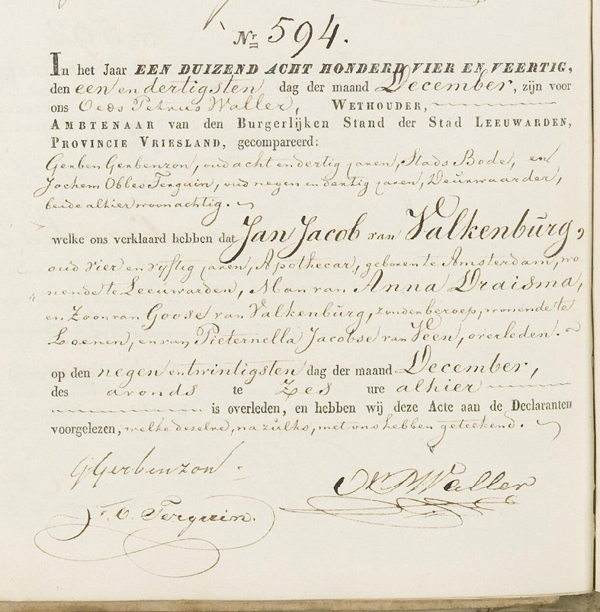 Nr. 594.
In het Jaar EEN DUIZEND ACHT HONDERD VIER EN VEERTIG,
den een en dertigsten dag der maand December, zijn voor
ons Oeds Petrus Waller, WETHOUDER,
AMBTENAAR van den Burgerlijken Stand der Stad LEEUWARDEN,
PROVINCIE VRIESLAND, gecompareerd:
Gerben Gerbenzon, oud acht en dertig jaren, Stads Bode, en
Jochem Obbes Terguin, oud negen en dertig jaren, Deurwaarder,
beide alhier woonachtig.
welke ons verklaard hebben dat Jan Jacob van Valkenburg,
oud vier en vyftig jaren, Apothecar, geboren te Amsterdam, wo
nende te Leeuwarden, Man van Anna Draisma,
en Zoon van Goose van Valkenburg, zonder beroep, wonende te
Loenen, en van Pieternella Jacobse van Veen, overleden.
op den negen en twintigsten dag der maand December,
des avonds te Zes ure alhier
is overleden, en hebben wij deze Acte aan de Declaranten
voorgelezen, welke dezelve, na zulks, met ons hebben geteekend.
G Gerbenzon.
Waller
J. O. Terguin.